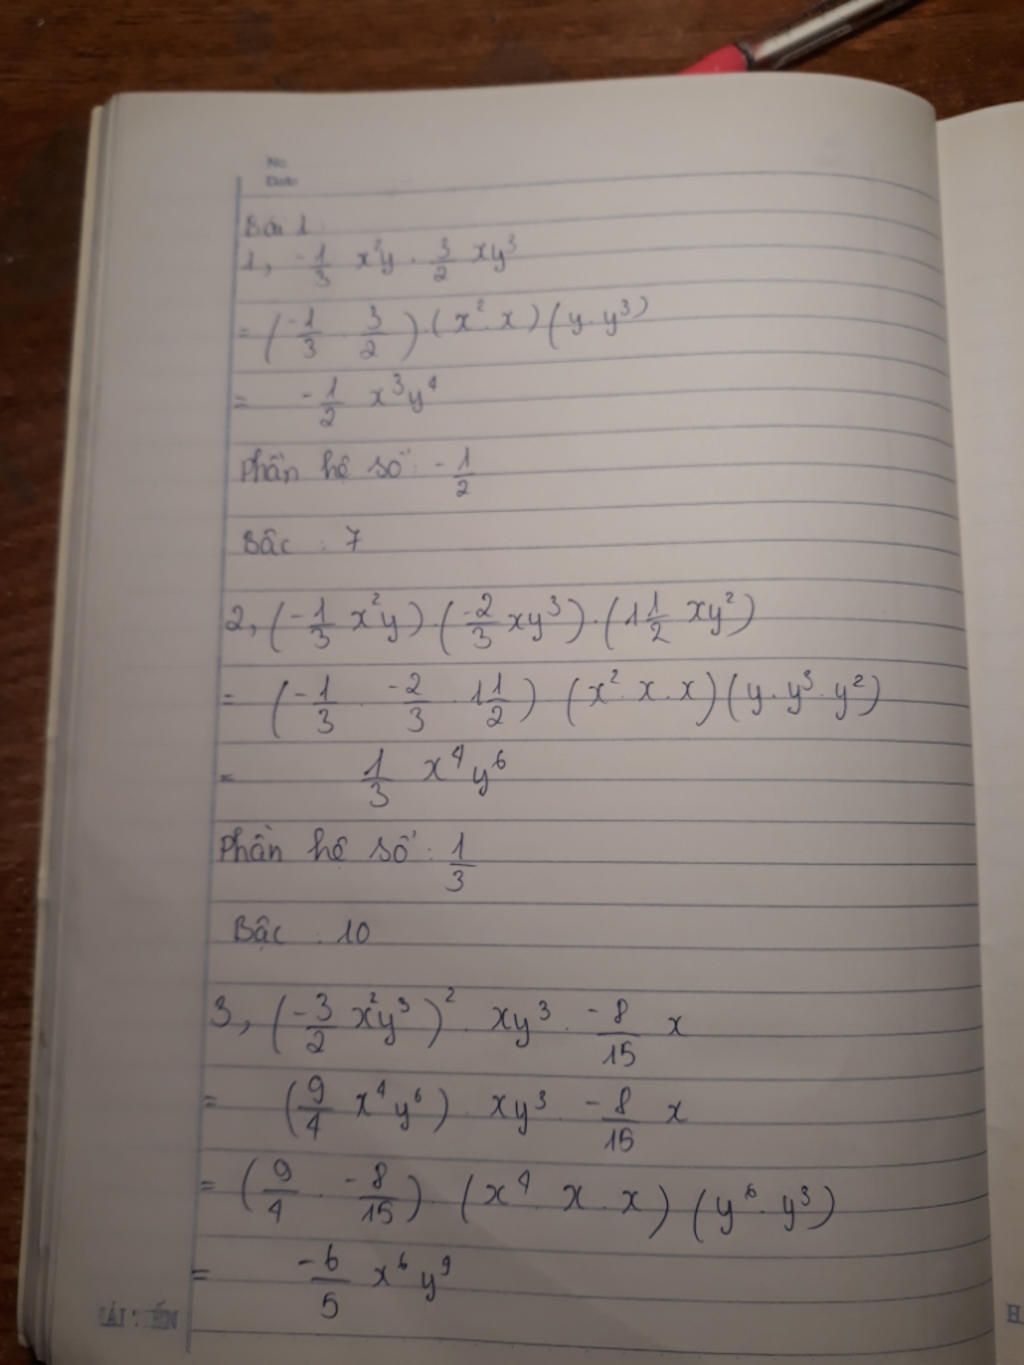 No
Date
Bài 1:
1, -1/3 x²y · 3/2 xy³
= (-1/3 · 3/2) · (x² · x) (y · y³)
= -1/2 x³y⁴
Phần hệ số: -1/2
Bậc : 7
2, (-1/3 x²y) · (-2/3 xy³) · (1 1/2 xy²)
= (-1/3 · -2/3 · 1 1/2) (x² · x · x) (y · y³ · y²)
= 1/3 x⁴y⁶
Phần hệ số : 1/3
Bậc : 10
3, (-3/2 x²y³)² · xy³ · -8/15 x
= (9/4 x⁴y⁶) · xy³ · -8/15 x
= (9/4 · -8/15) · (x⁴ · x · x) (y⁶ · y³)
= -6/5 x⁶y⁹